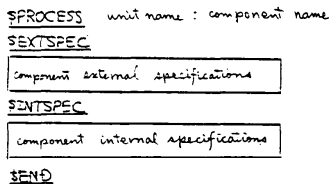 $PROCESS unit name : component name
$EXTSPEC
component external specifications
$INTSPEC
component internal specifications
$END